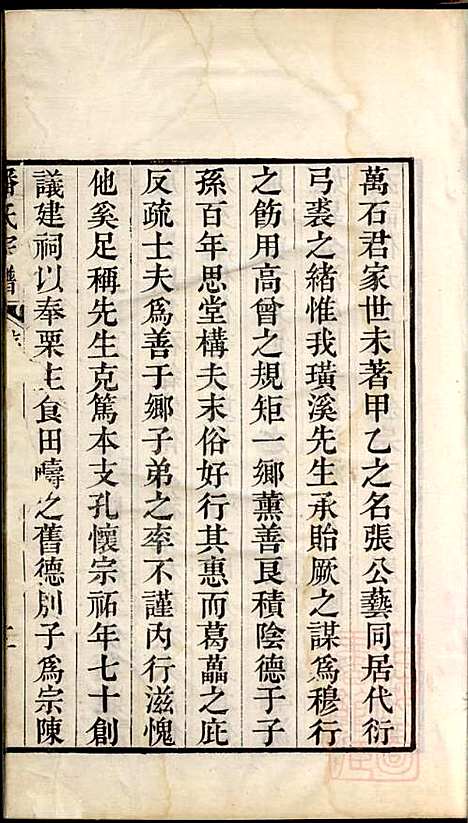 萬石君家世未著甲乙之名張公藝同居代衍
弓裘之緒惟我璜溪先生承貽厥之謀爲穆行
之飭用高曾之規矩一鄉薰善良積陰德于子
孫百年思堂構夫末俗好行其惠而葛藟之庇
反疏士夫爲善于鄉子弟之率不謹內行滋愧
他奚足稱先生克篤本支孔懷宗祏年七十創
議建祠以奉栗主食田疇之舊德別子爲宗陳
潘氏宗譜